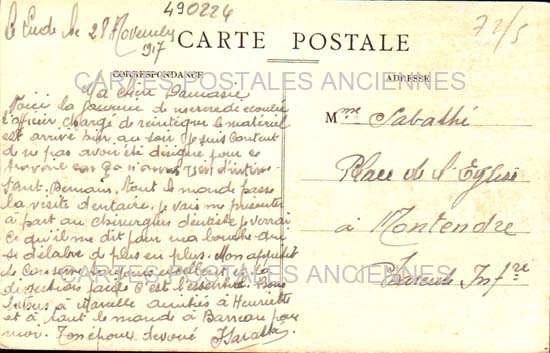 490224
72/5
Le 28 Novembre
1917
CARTE POSTALE
CORRESPONDANCE
ADRESSE
CARTES POSTALES ANCIENNES
Ma chère
Voici la journée de mercredi écoulée
l'officier chargé de réintégrer le matériel
est arrivé hier au soir je suis content
de ne pas avoir été désigné pour ce
travail car ça n'aurait rien d'intéres-
sant. Demain, tout le monde passe
la visite dentaire, je vais me présenter
à part au chirurgien dentiste, je verrai
ce qu'il me dit pour ma bouche qui
se délabre de plus en plus. Mon appétit
se conserve toujours excellent, et la
digestion facile c'est l'essentiel. Bons
baisers à Marcelle amitiés à Henriette
et à tout le monde à Barreau pour
moi. Ton époux dévoué JSabathé
Mme Sabathé
Place de l'Eglise
à Montendre
Infre
CARTES POSTALES ANCIENNES